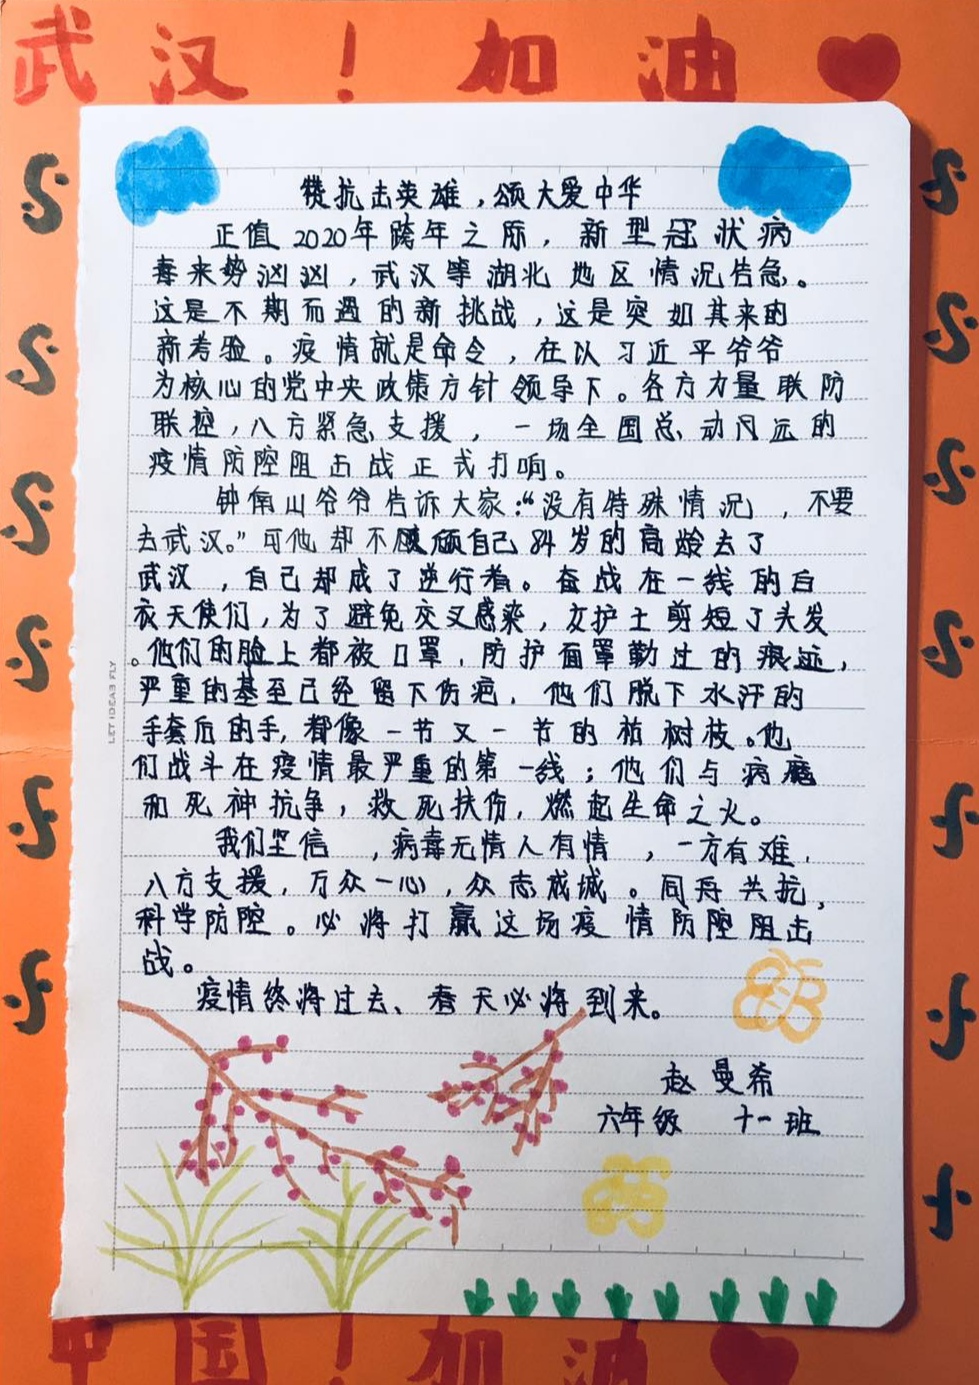 武汉！加油
赞抗击英雄，颂大爱中华
正值2020年跨年之际，新型冠状病
毒来势汹汹，武汉等湖北地区情况告急。
这是不期而遇的新挑战，这是突如其来的
新考验。疫情就是命令，在以习近平爷爷
为核心的党中央政策方针领导下。各方力量联防
联控，八方紧急支援，一场全国总动员的
疫情防控阻击战正式打响。
钟南山爷爷告诉大家：“没有特殊情况，不要
去武汉。”可他却不顾自己84岁的高龄去了
武汉，自己却成了逆行者。奋战在一线的白
衣天使们，为了避免交叉感染，女护士剪短了头发
。他们的脸上都被口罩，防护面罩勒过的痕迹，
严重的甚至已经留下伤疤，他们脱下水汗的
手套后的手，都像一节又一节的枯树枝。他
们战斗在疫情最严重的第一线；他们与病魔
和死神抗争，救死扶伤，燃起生命之火。
我们坚信，病毒无情人有情，一方有难，
八方支援，万众一心，众志成城。同舟共抗，
科学防控。必将打赢这场疫情防控阻击
战。
疫情终将过去、春天必将到来。
赵曼希
六年级 十一班
LET IDEAS FLY
中国！加油